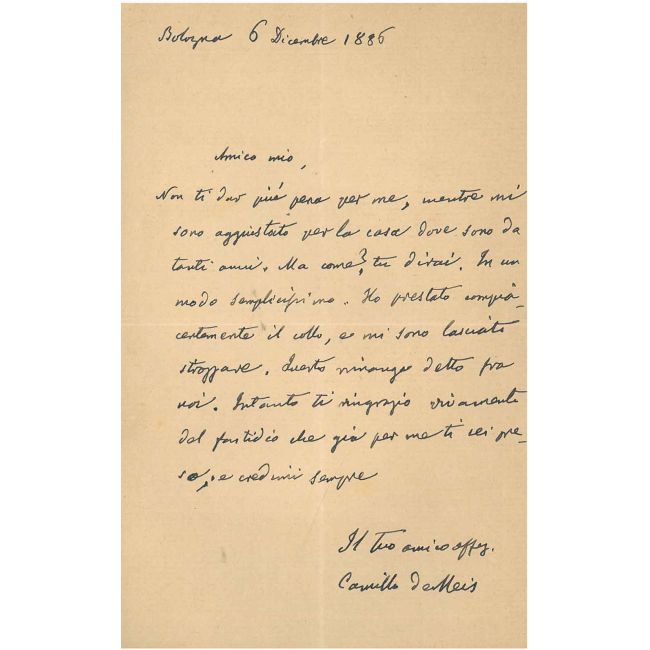 Bologna 6 Dicembre 1886
Amico mio,
Non ti dar più pena per me, mentre mi
sono aggiustato per la casa dove sono da
tanti anni. Ma come?, tu dirai. In un
modo semplicissimo. Ho prestato compia-
centemente il collo, e mi sono lasciato
strozzare. Questo rimanga detto fra
noi. Intanto ti ringrazio vivamente
del fastidio che già per me ti sei pre-
so, e credimi sempre
Il tuo amico affez.
Camillo de Meis